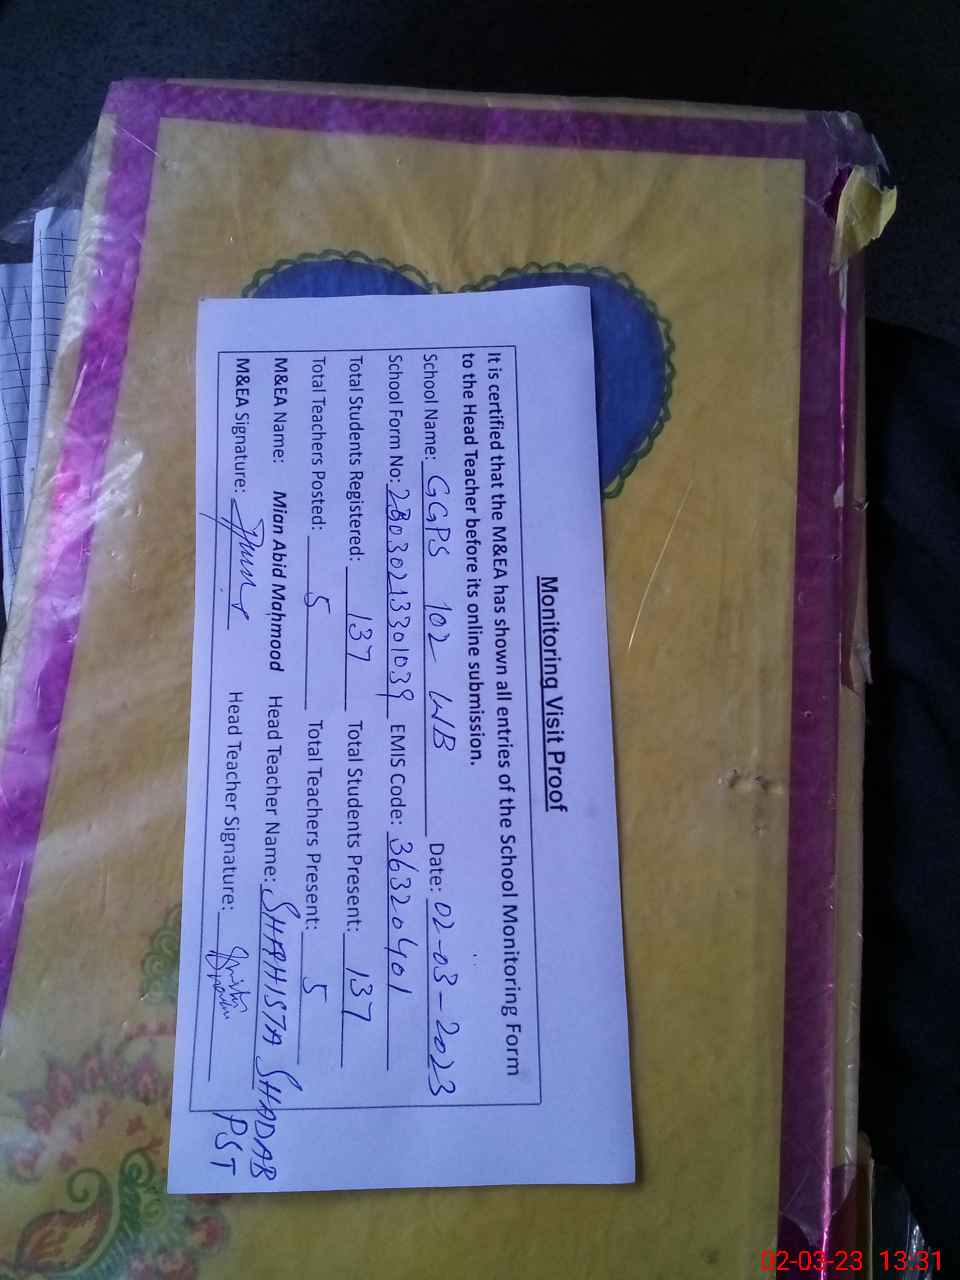 Monitoring Visit Proof
It is certified that the M&EA has shown all entries of the School Monitoring Form
to the Head Teacher before its online submission.
School Name: GGPS 102 WB Date: 02-03-2023
School Form No: 2B030213301039 EMIS Code: 36320401
Total Students Registered: 137 Total Students Present: 137
Total Teachers Posted: 5 Total Teachers Present: 5
M&EA Name: Mian Abid Mahmood Head Teacher Name: SHAHISTA SHADAB
M&EA Signature: Head Teacher Signature: PST
02-03-23 13:31